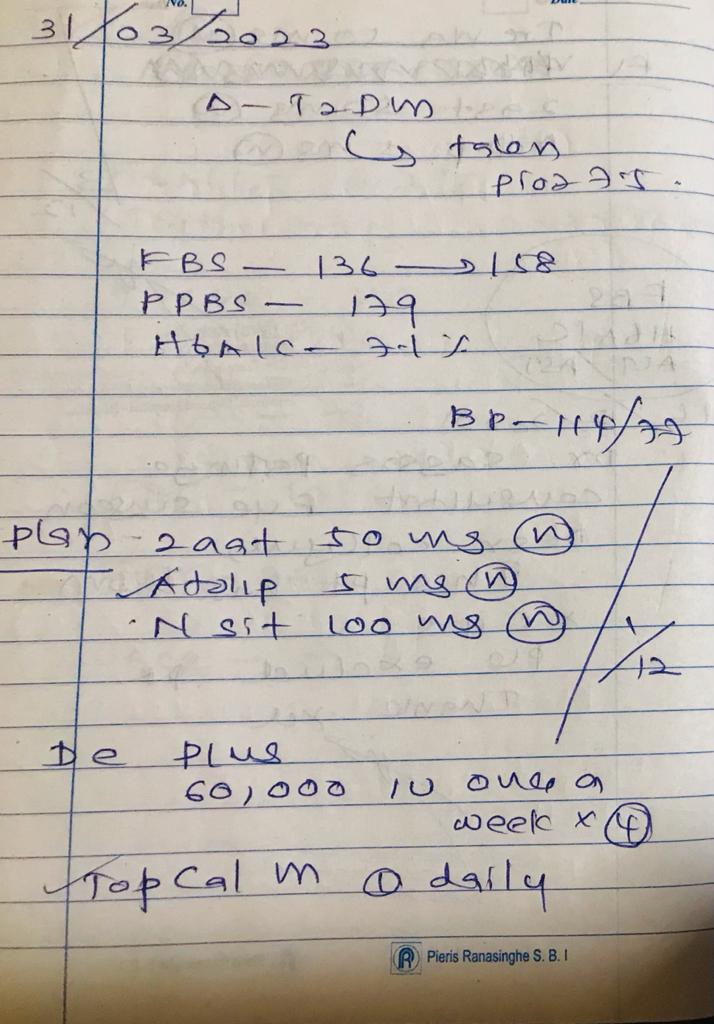 No.
31/03/2023
Δ - T2DM
↳ taken
pioz 7.5.
FBS — 136 → 158
PPBS — 179
HbA1C — 7.1 %
BP — 114/77
Plan - 50 mg (n)
✓ 5 mg (n)
· N sit 100 mg (n)
1/12
De Plus
60,000 IU once a
week × (4)
✓ TopCal M (1) daily
R Pieris Ranasinghe S. B. I